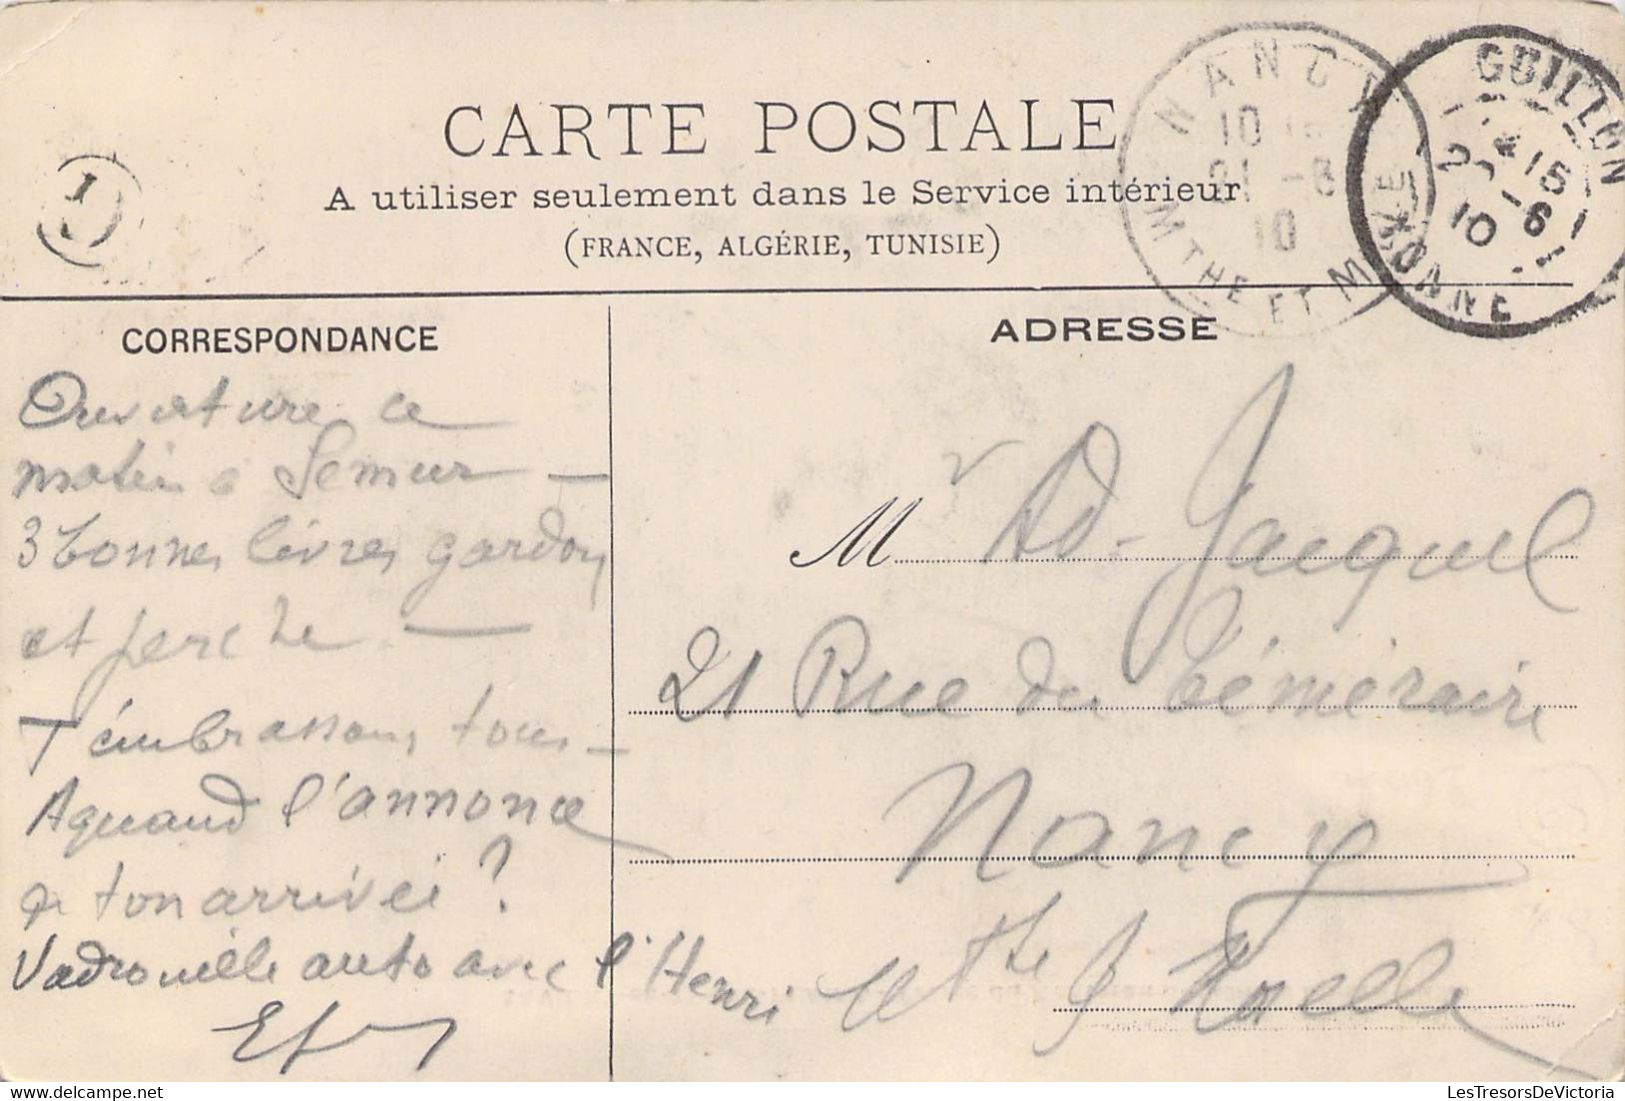 CARTE POSTALE
A utiliser seulement dans le Service intérieur
(FRANCE, ALGÉRIE, TUNISIE)
NANCY
10
21 -6
10
MTHE ET MLLE
GUILLON
15
20 -6
10
YONNE
CORRESPONDANCE
Ouverture ce
matin à Semur —
3 bonnes livres gardons
et perche —
T'embrassons tous —
A quand l'annonce
de ton arrivée ?
Vadrouille auto avec l'Henri
ADRESSE
Mr Ad. Jacquel
21 Rue du Téméraire
Nancy
Mthe & Moselle
LesTresorsDeVictoria